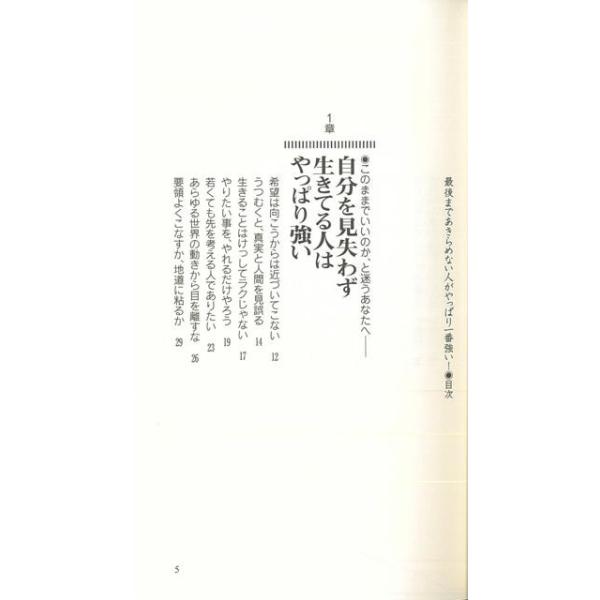 最後まであきらめない人がやっぱり一番強い!●目次
1章
●このままでいいのか、と迷うあなたへ——
自分を見失わず
生きてる人は
やっぱり強い
希望は向こうからは近づいてこない 12
うつむくと、真実と人間を見誤る 14
生きることはけっしてラクじゃない 17
やりたい事を、やれるだけやろう 19
若くても先を考える人でありたい 23
あらゆる世界の動きから目を離すな 26
要領よくこなすか、地道に粘るか 29
5